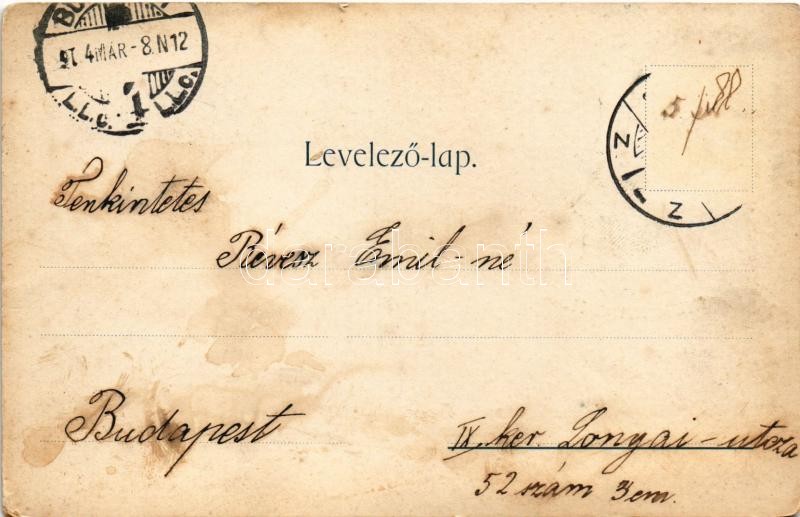 BU
4 MAR-8.N12
I.I.C. 1 I.I.C.
5 fill.
Levelező-lap.
Tenkintetes
Révész Emil-né
darabanth
Budapest
IX. ker. Lonyai-utcza
52 szám 3 em.